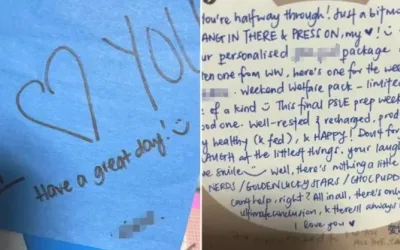 ♡ YOU
Have a great day!
You're halfway through! Just a bit mo
ANG IN THERE & PRESS ON, my ♥!
ur personalised package
en one from WW, here's one for the wee
Weekend Welfare pack – limited
of a kind ☺ This final PSLE prep week
ood one. Well-rested & recharged, prod
y healthy (& fed), & HAPPY! Don't for
AUGH at the littlest things, your laugh
e smile Well, there's nothing a little
NERDS/GOLDEN LUCKY STARS/CHOC PUDD
can't help, right? All in all, there's only
ultimate conclusion, & there'll always
I love you ♥